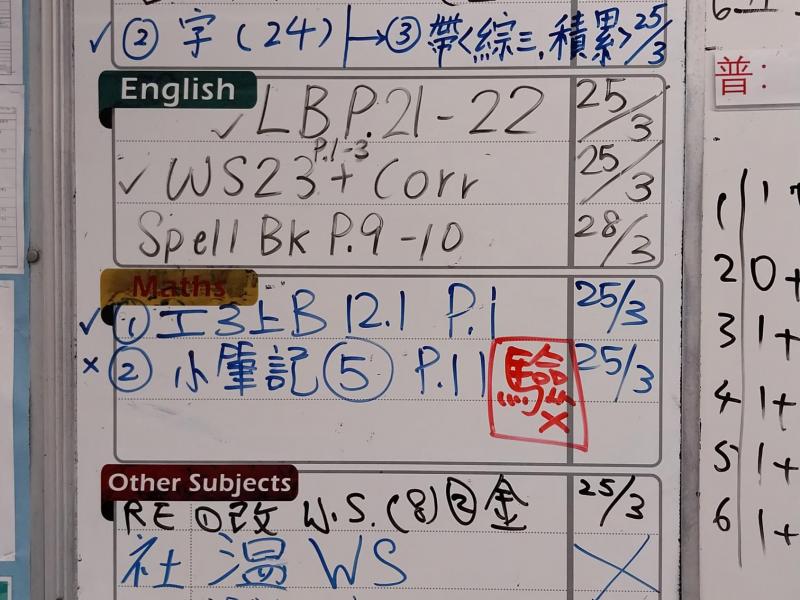 ✓ ② 字 (24) ├→③ 帶<綜三,積累> 25/3
English
✓ LB P.21-22 25/3
P.1-3
✓ WS23 + Corr 25/3
Spell Bk P.9-10 28/3
Maths
✓ ① 工3上B 12.1 P.1 25/3
× ② 小筆記⑤ P.11 25/3
驗
×
Other Subjects
RE ①改 W.S. (8) ②金 25/3
社 溫 WS ×
普:
( 1
2 0+
3 1+
4 1+
5 1+
6 1+